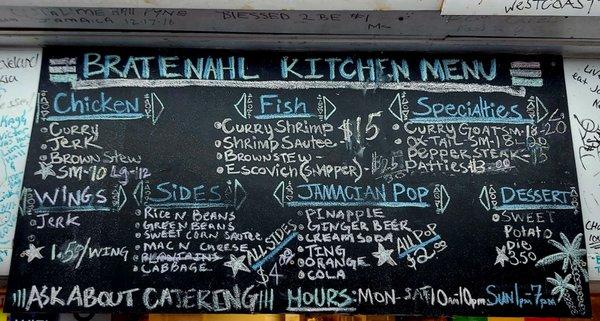 JAMAICA 12-17-16
BLESSED 2 BE #1
WESTCOAST
BRATENAHL KITCHEN MENU
CHICKEN
CURRY
JERK
BROWN STEW
SM-10 LG-12
FISH
CURRY SHRIMP
SHRIMP SAUTEE
$15
BROWNSTEW-
ESCOVICH (SNAPPER)
SPECIALTIES
CURRY GOAT SM-18-20
OX-TAIL-SM-18L-20
PEPPER STEAK-15
PATTIES
WINGS
JERK
1.50/WING
SIDES
RICE N BEANS
GREEN BEANS
SWEET CORN SAUTEE
MAC N CHEESE
PLANTAINS
CABBAGE
ALL SIDES
$4.00
JAMACIAN POP
PINAPPLE
GINGER BEER
CREAM SODA
TING
ORANGE
COLA
ALL POP
$2.00
DESSERT
SWEET
POTATO
PIE
3.50
ASK ABOUT CATERING HOURS: MON-SAT 10AM-10PM SUN 1-7PM